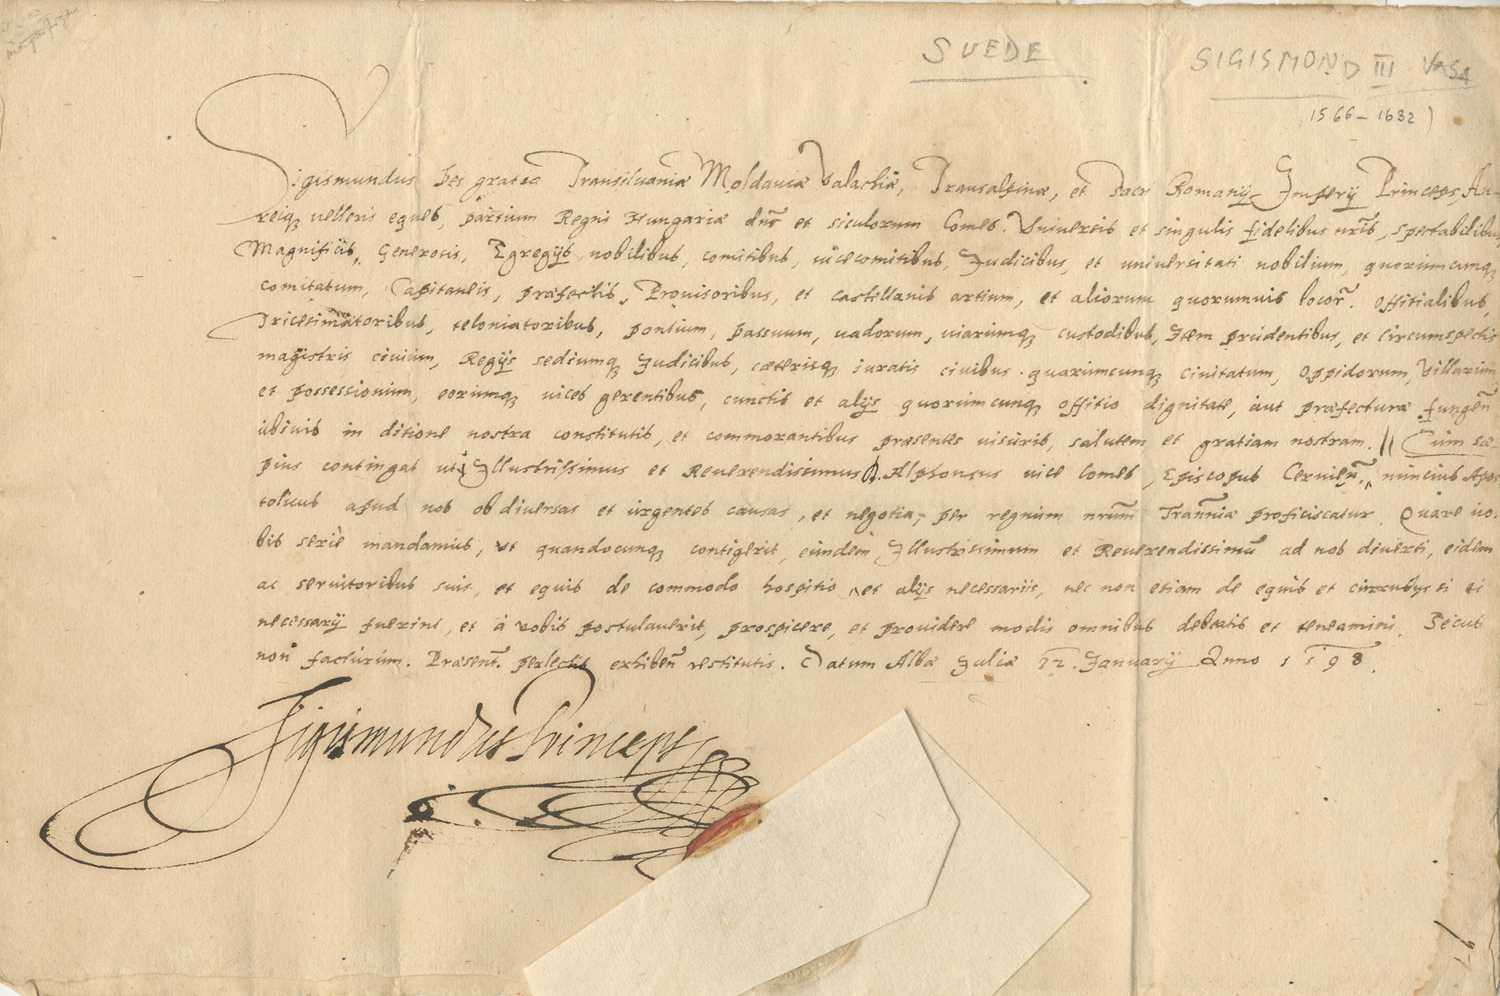 SUEDE
SIGISMOND III VASA
1566-1632)
Sigismundus Dei gratia Transilvaniæ Moldaviæ Valachiæ, Transalpinæ, et Sacr Romanij Imperij Princeps, Au
reiq velleris eques, partium Regni Hungariæ dns et siculorum Comes. Universis et singulis fidelibus nris, spectabilibus,
Magnificis, Generosis, Egregijs, nobilibus, comitibus, vicecomitibus, Judicibus, et universitati nobilium, quorumcunq
comitatum, Capitaneis, præfectis, Provisoribus, et castellanis artium, et aliorum quorumvis locor. offitialibus,
Tricesimatoribus, teloniatoribus, pontium, passuum, vadorum, viarumq custodibus, Item prudentibus, et circumspectis
magistris civium, Regijs sediumq Judicibus, cæterisq iuratis civibus quarumcunq civitatum, oppidorum, Villarum
et possessionum, eorumq vices gerentibus, cunctis et alijs quorumcunq offitio dignitate, aut præfectura fungen
ubivis in ditione nostra constitutis, et commorantibus præsentes visuris, salutem et gratiam nostram. Cum sæ
pius contingat uti Illustrissimus et Reverendissimus D. Alphonsus vice Comes, Episcopus Cervien, nuncius Apos
tolicus apud nos ob diversas et urgentes causas, et negotia, per regnum nrum Tranniæ proficiscatur. Quare vo
bis serie mandamus, ut quandocunq contigerit, eundem Illustrissimum et Reverendissimu ad nos diverti, eidem
ac servitoribus suis, et equis de commodo hospitio et alijs necessariis, nec non etiam de equis et curribus si ei
necessarij fuerint, et à vobis postulaverit, prospicere, et providere modis omnibus debeatis et teneamini. Secus
non facturum. Præsent. perlectis exhiben restitutis. Datum Albæ Juliæ 12. Januarij Anno 1598.
Sigismundus Princeps